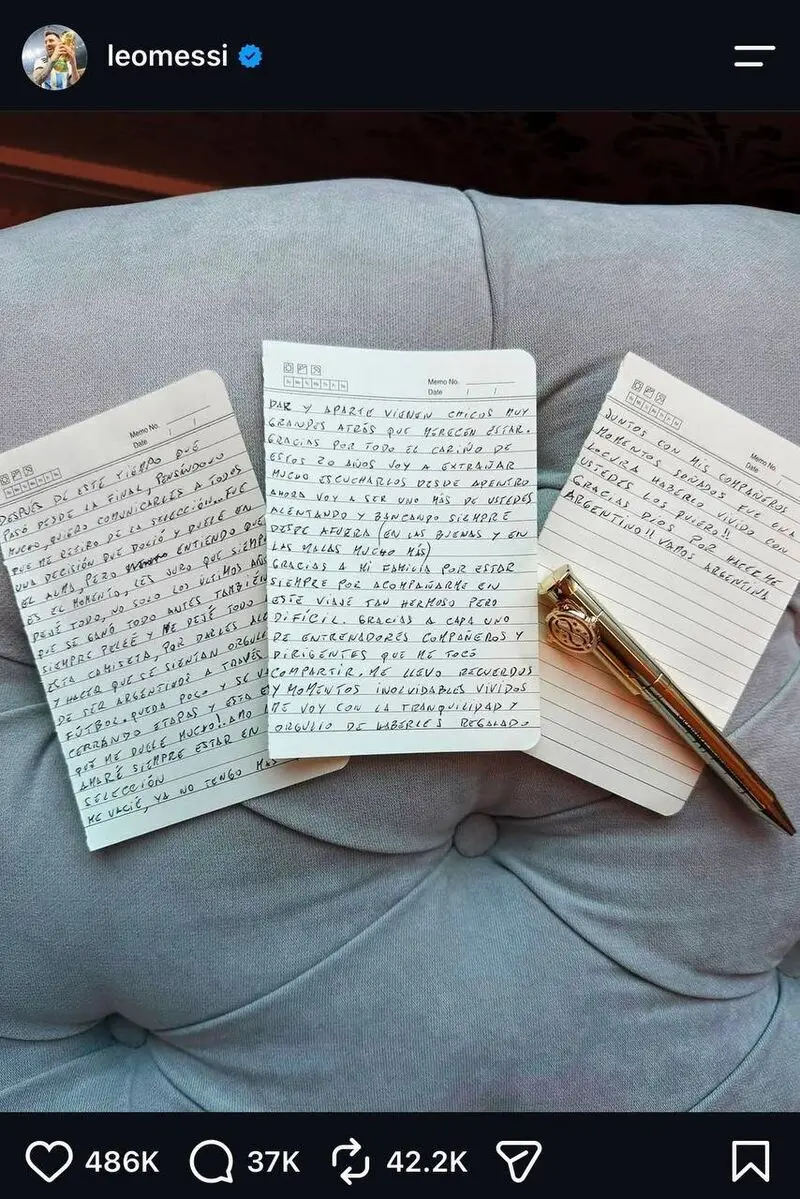 leomessi
Memo No.
Date / /
DESPUÉS DE ESTE TIEMPO QUE
PASÓ DESDE LA FINAL, PENSÁNDOLO
MUCHO, QUIERO COMUNICARLES A TODOS
QUE ME RETIRO DE LA SELECCIÓN. FUE
UNA DECISIÓN QUE DOLIÓ Y DUELE EN
EL ALMA, PERO ENTIENDO QUE
ES EL MOMENTO, LES JURO QUE SIEMPRE
DEJÉ TODO, NO SOLO LOS ÚLTIMOS AÑOS
QUE SE GANÓ TODO ANTES TAMBIÉN
SIEMPRE PELEÉ Y ME DEJÉ TODO
ESTA CAMISETA, POR DARLES
Y HACER QUE SE SIENTAN
DE SER ARGENTINOS A TRAVÉS
FÚTBOL. QUEDA POCO Y SE
CERRANDO ETAPAS Y ESTA
QUE ME DUELE MUCHO! AMO
AMARÉ SIEMPRE ESTAR EN
SELECCIÓN
ME VACIÉ, YA NO TENGO MÁS
Memo No.
Date / /
DAR Y APARTE VIENEN CHICOS MUY
GRANDES ATRÁS QUE MERECEN ESTAR.
GRACIAS POR TODO EL CARIÑO DE
ESTOS 20 AÑOS VOY A EXTRAÑAR
MUCHO ESCUCHARLOS DESDE ADENTRO
AHORA VOY A SER UNO MÁS DE USTEDES
ALENTANDO Y BANCANDO SIEMPRE
DESDE AFUERA (EN LAS BUENAS Y EN
LAS MALAS MUCHO MÁS)
GRACIAS A MI FAMILIA POR ESTAR
SIEMPRE POR ACOMPAÑARME EN
ESTE VIAJE TAN HERMOSO PERO
DIFÍCIL. GRACIAS A CADA UNO
DE ENTRENADORES COMPAÑEROS Y
DIRIGENTES QUE ME TOCÓ
COMPARTIR. ME LLEVO RECUERDOS
Y MOMENTOS INOLVIDABLES VIVIDOS
ME VOY CON LA TRANQUILIDAD Y
ORGULLO DE HABERLES REGALADO
Memo No.
Date /
JUNTOS CON MIS COMPAÑEROS
MOMENTOS SOÑADOS FUE UNA
LOCURA HABERLO VIVIDO CON
USTEDES LOS QUIERO!!
GRACIAS DIOS POR HACERME
ARGENTINO!! VAMOS ARGENTINA
486K 37K 42.2K